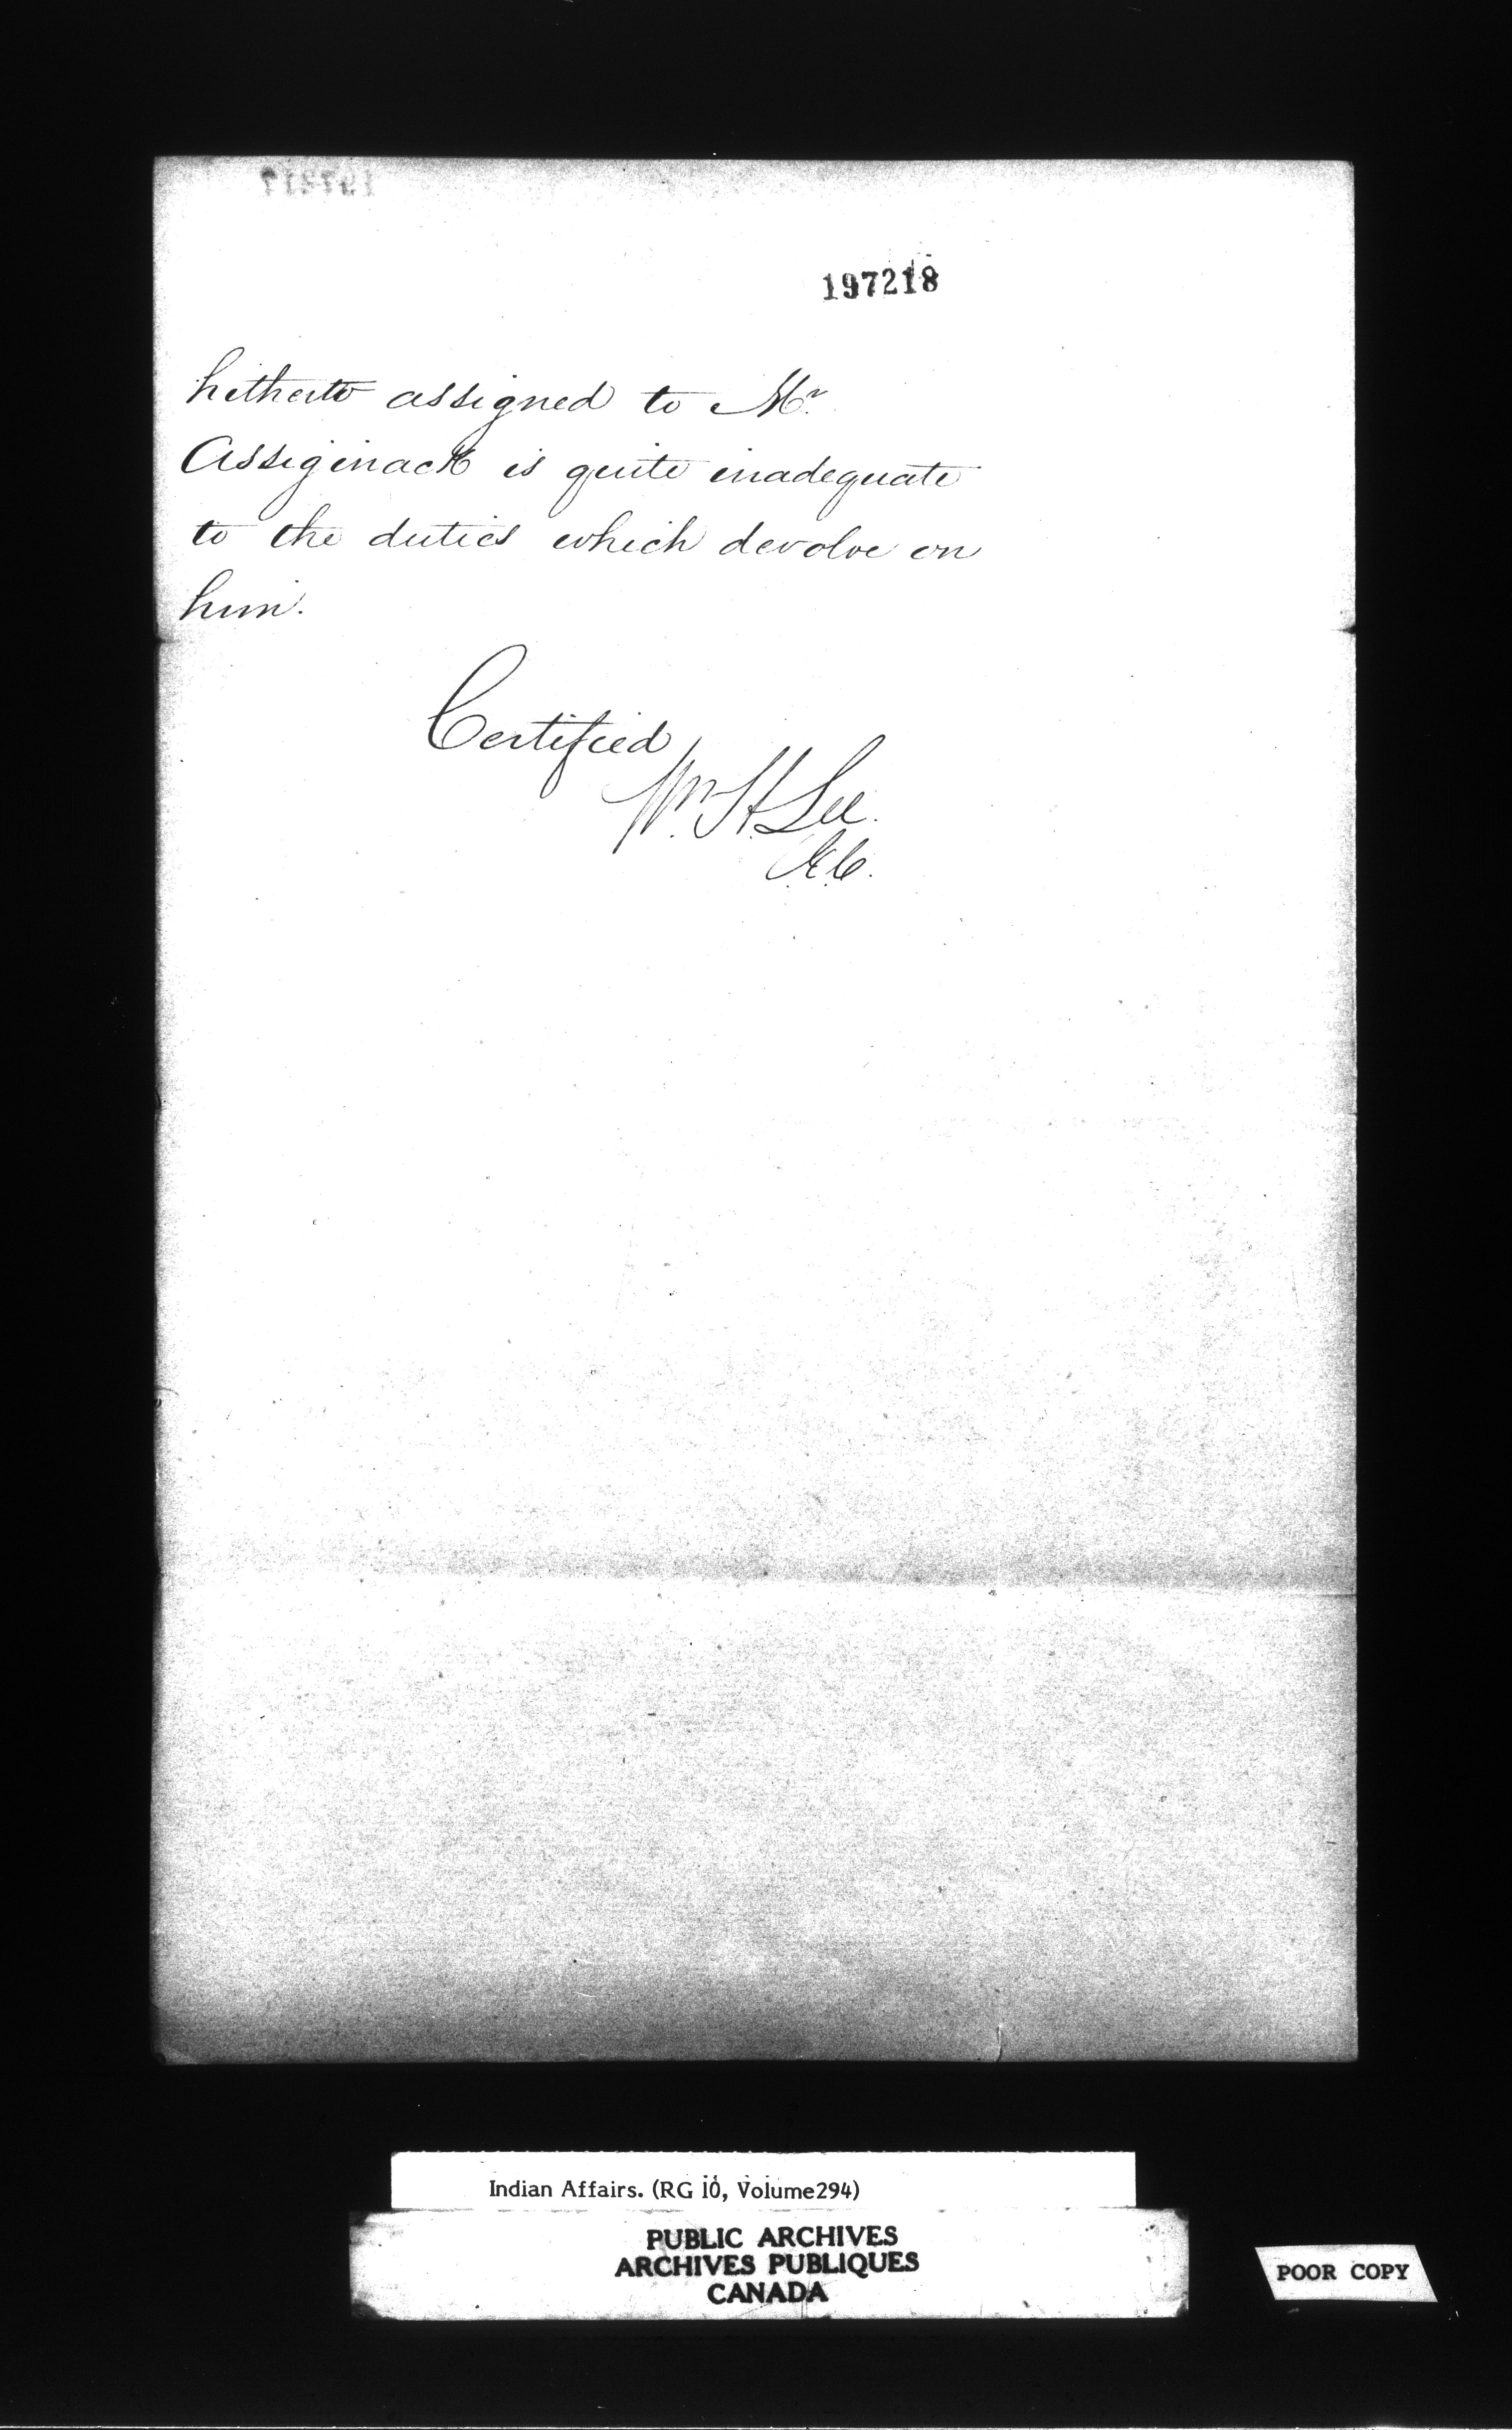 197218
hitherto assigned to Mr.
Assiginack is quite inadequate
to the duties which devolve on
him.
Certified
Wm. H. Lee.
Indian Affairs. (RG 10, Volume 294)
PUBLIC ARCHIVES
ARCHIVES PUBLIQUES
CANADA
POOR COPY